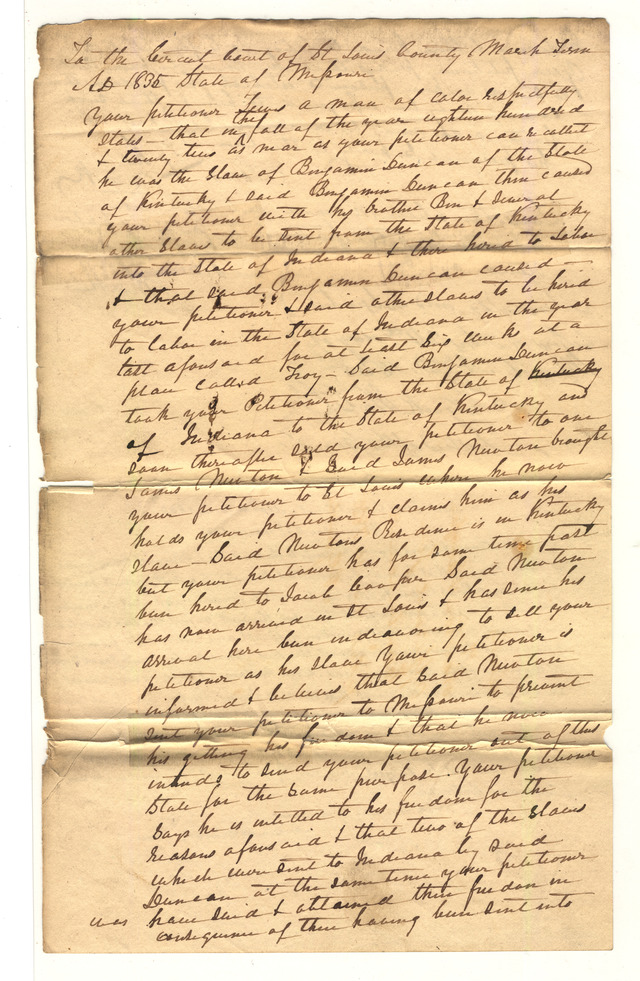 To the Circuit Court of St Louis County March Term
AD 1835 State of Missouri
your petitioner a man of color respectfully
States - that in the fall of the year eighteen hundred
& twenty two as near as your petitioner can recollect
he was the Slave of Benjamin Duncan of the State
of Kentucky & said Benjamin Duncan then caused
your petitioner with his brother Ben & several
other Slaves to be sent from the State of Kentucky
into the State of Indiana & there hired to Labor
& that said Benjamin Duncan caused -
your petitioner & said other slaves to be hired
to labor in the State of Indiana in the year
last aforesaid for at least Six weeks at a
place called Troy - Said Benjamin Duncan
took your Petitioner from the State of Kentucky
of Indiana to the State of Kentucky and
soon thereafter sold your petitioner to one
James Newton & Said James Newton brought
your petitioner to St Louis where he now
holds your petitioner & claims him as his
slave - Said Newtons Residence is in Kentucky
but your petitioner has for some time past
been hired to Jacob Cooper Said Newton
has now arrived in St Louis & has since his
arrival here been indeavoring to sell your
petitioner as his slave Your petitioner is
informed & believes that Said Newton
sent your petitioner to Missouri to prevent
his getting his freedom & that he now
intends to send your petitioner out of this
State for the same purpose. Your petitioner
Says he is intitled to his freedom for the
reasons aforesaid & that two of the Slaves
which were sent to Indiana by said
Duncan at the same time your petitioner
was have sued & obtained their freedom in
consequence of there having been sent into